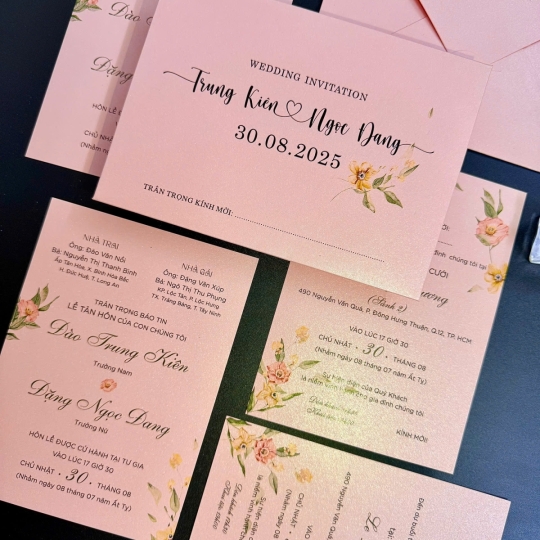 Đào
Đặng
HÔN LỄ Đ
CHỦ NHẬT
(Nhằm ngày
WEDDING INVITATION
Trung Kiên Ngọc Dang
30.08.2025
TRÂN TRỌNG KÍNH MỜI:
NHÀ TRAI
Ông: Đào Văn Nổi
Bà: Nguyễn Thị Thanh Bình
Ấp Tân Hòa, X. Bình Hòa Bắc
H. Đức Huệ, T. Long An
NHÀ GÁI
Ông: Đặng Văn Xúp
Bà: Ngô Thị Thu Phụng
KP. Lộc Tân, P. Lộc Hưng
TX. Trảng Bàng, T. Tây Ninh
TRÂN TRỌNG BÁO TIN
LỄ TÂN HÔN CỦA CON CHÚNG TÔI
Đào Trung Kiên
Trưởng Nam
Đặng Ngọc Dang
Trưởng Nữ
HÔN LỄ ĐƯỢC CỬ HÀNH TẠI TƯ GIA
VÀO LÚC 17 GIỜ 30
CHỦ NHẬT • 30 • THÁNG 08
(Nhằm ngày 08 tháng 07 năm Ất Tỵ)
đình chúng tôi tại
CƯỚI
ương
(Sảnh 2)
490 Nguyễn Văn Quá, P. Đông Hưng Thuận, Q.12, TP. HCM
VÀO LÚC 17 GIỜ 30
CHỦ NHẬT • 30 • THÁNG 08
(Nhằm ngày 08 tháng 07 năm Ất Tỵ)
Sự hiện diện của Quý Khách
là niềm vinh hạnh cho gia đình chúng tôi.
KÍNH MỜI
Đến dự buổi
tại
Le
490 Nguyễn Văn Quá
VÀO
CHỦ NHẬT •
(Nhằm ngày 0
Sự hiện diện
là niềm vinh hạnh